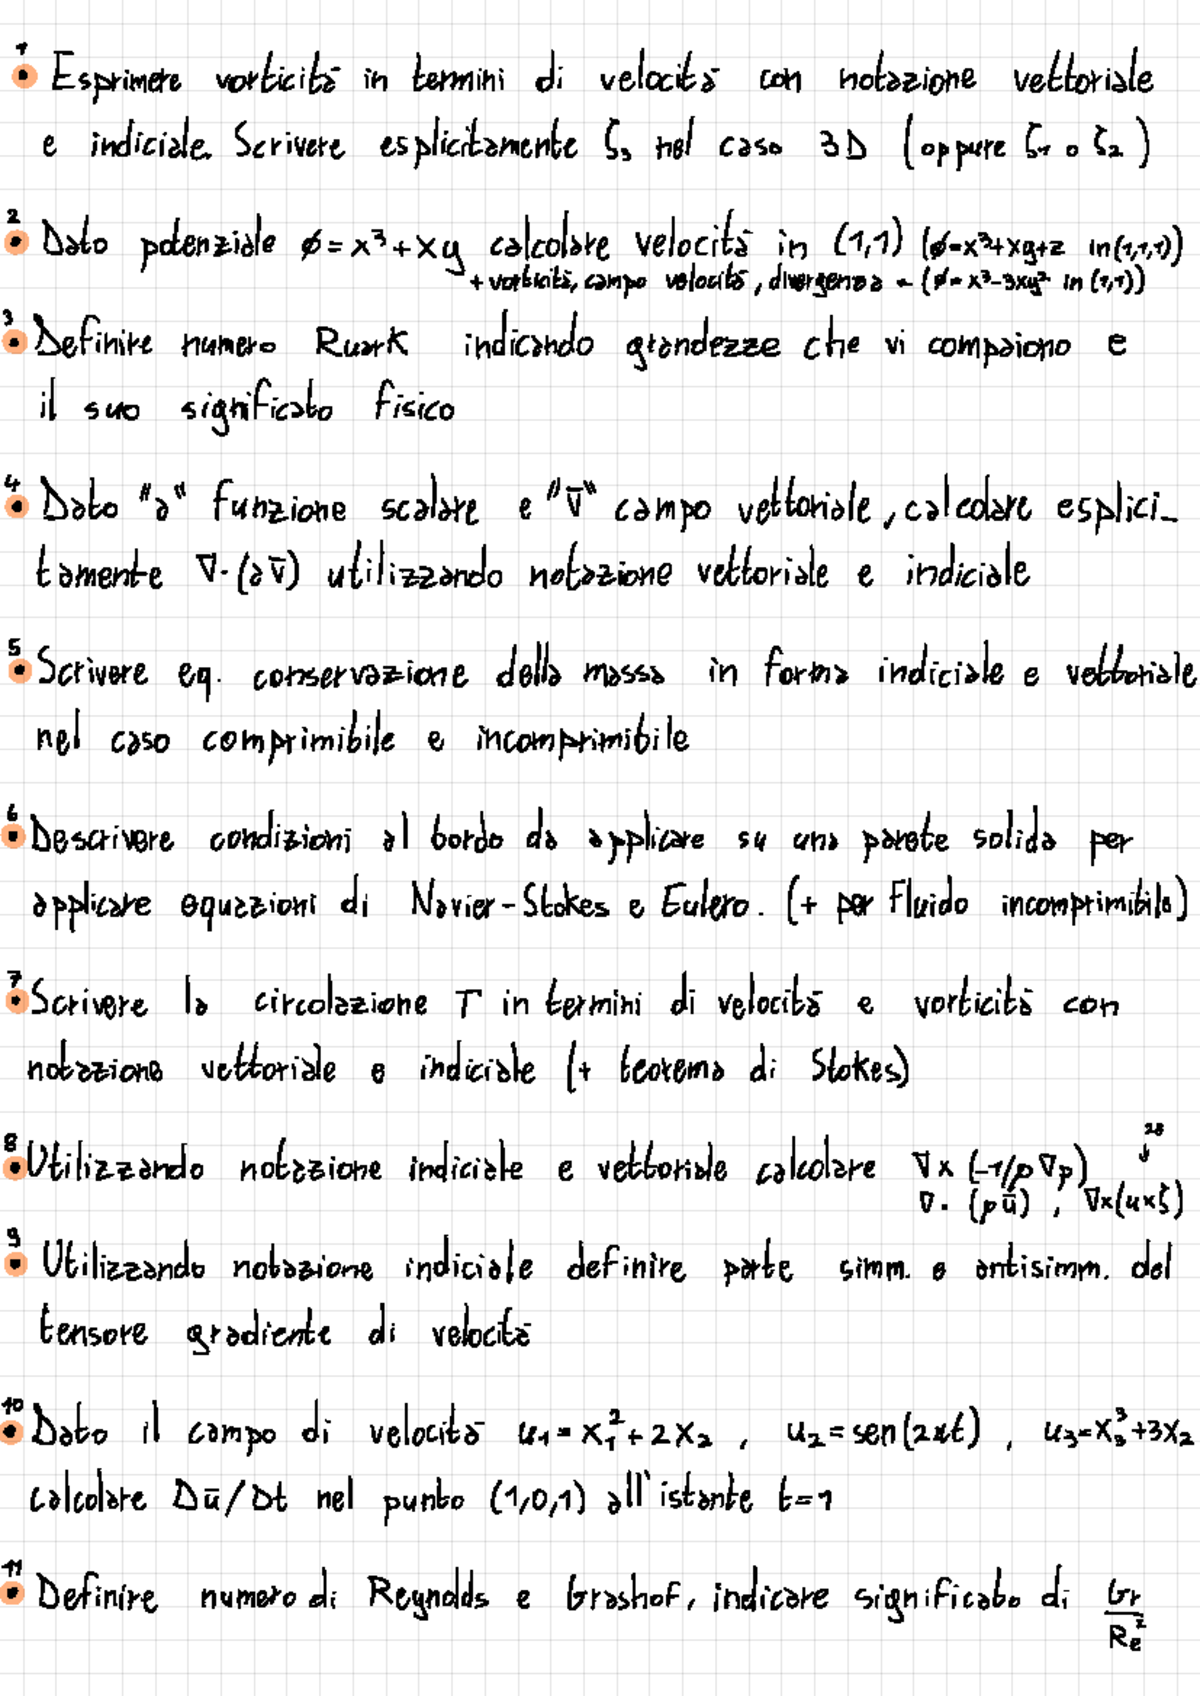 1
• Esprimere vorticità in termini di velocità con notazione vettoriale
e indiciale. Scrivere esplicitamente ζ₃ nel caso 3D (oppure ζ₁ o ζ₂)
2
• Dato potenziale ϕ = x³ + xy calcolare velocità in (1,1) (ϕ=x³+xy+z in (1,1,1))
+ vorticità, campo velocità, divergenza - (ϕ=x³-3xy² in (1,1))
3
• Definire numero Ruark indicando grandezze che vi compaiono e
il suo significato fisico
4
• Dato "a" funzione scalare e "v̄" campo vettoriale, calcolare esplici-
tamente ∇·(a v̄) utilizzando notazione vettoriale e indiciale
5
• Scrivere eq. conservazione della massa in forma indiciale e vettoriale
nel caso comprimibile e incomprimibile
6
• Descrivere condizioni al bordo da applicare su una parete solida per
applicare equazioni di Navier-Stokes e Eulero. (+ per fluido incomprimibile)
7
• Scrivere la circolazione Γ in termini di velocità e vorticità con
notazione vettoriale e indiciale (+ teorema di Stokes)
28
8
• Utilizzando notazione indiciale e vettoriale calcolare ∇×(-1/ρ ∇p) ↓
∇·(ρū), ∇×(u×ζ)
9
• Utilizzando notazione indiciale definire parte simm. e antisimm. del
tensore gradiente di velocità
10
• Dato il campo di velocità u₁ = x₁² + 2x₂, u₂ = sen(2πt), u₃=x₃³+3x₂
calcolare Dū/Dt nel punto (1,0,1) all'istante t=1
11
• Definire numero di Reynolds e Grashof, indicare significato di Gr/Re²